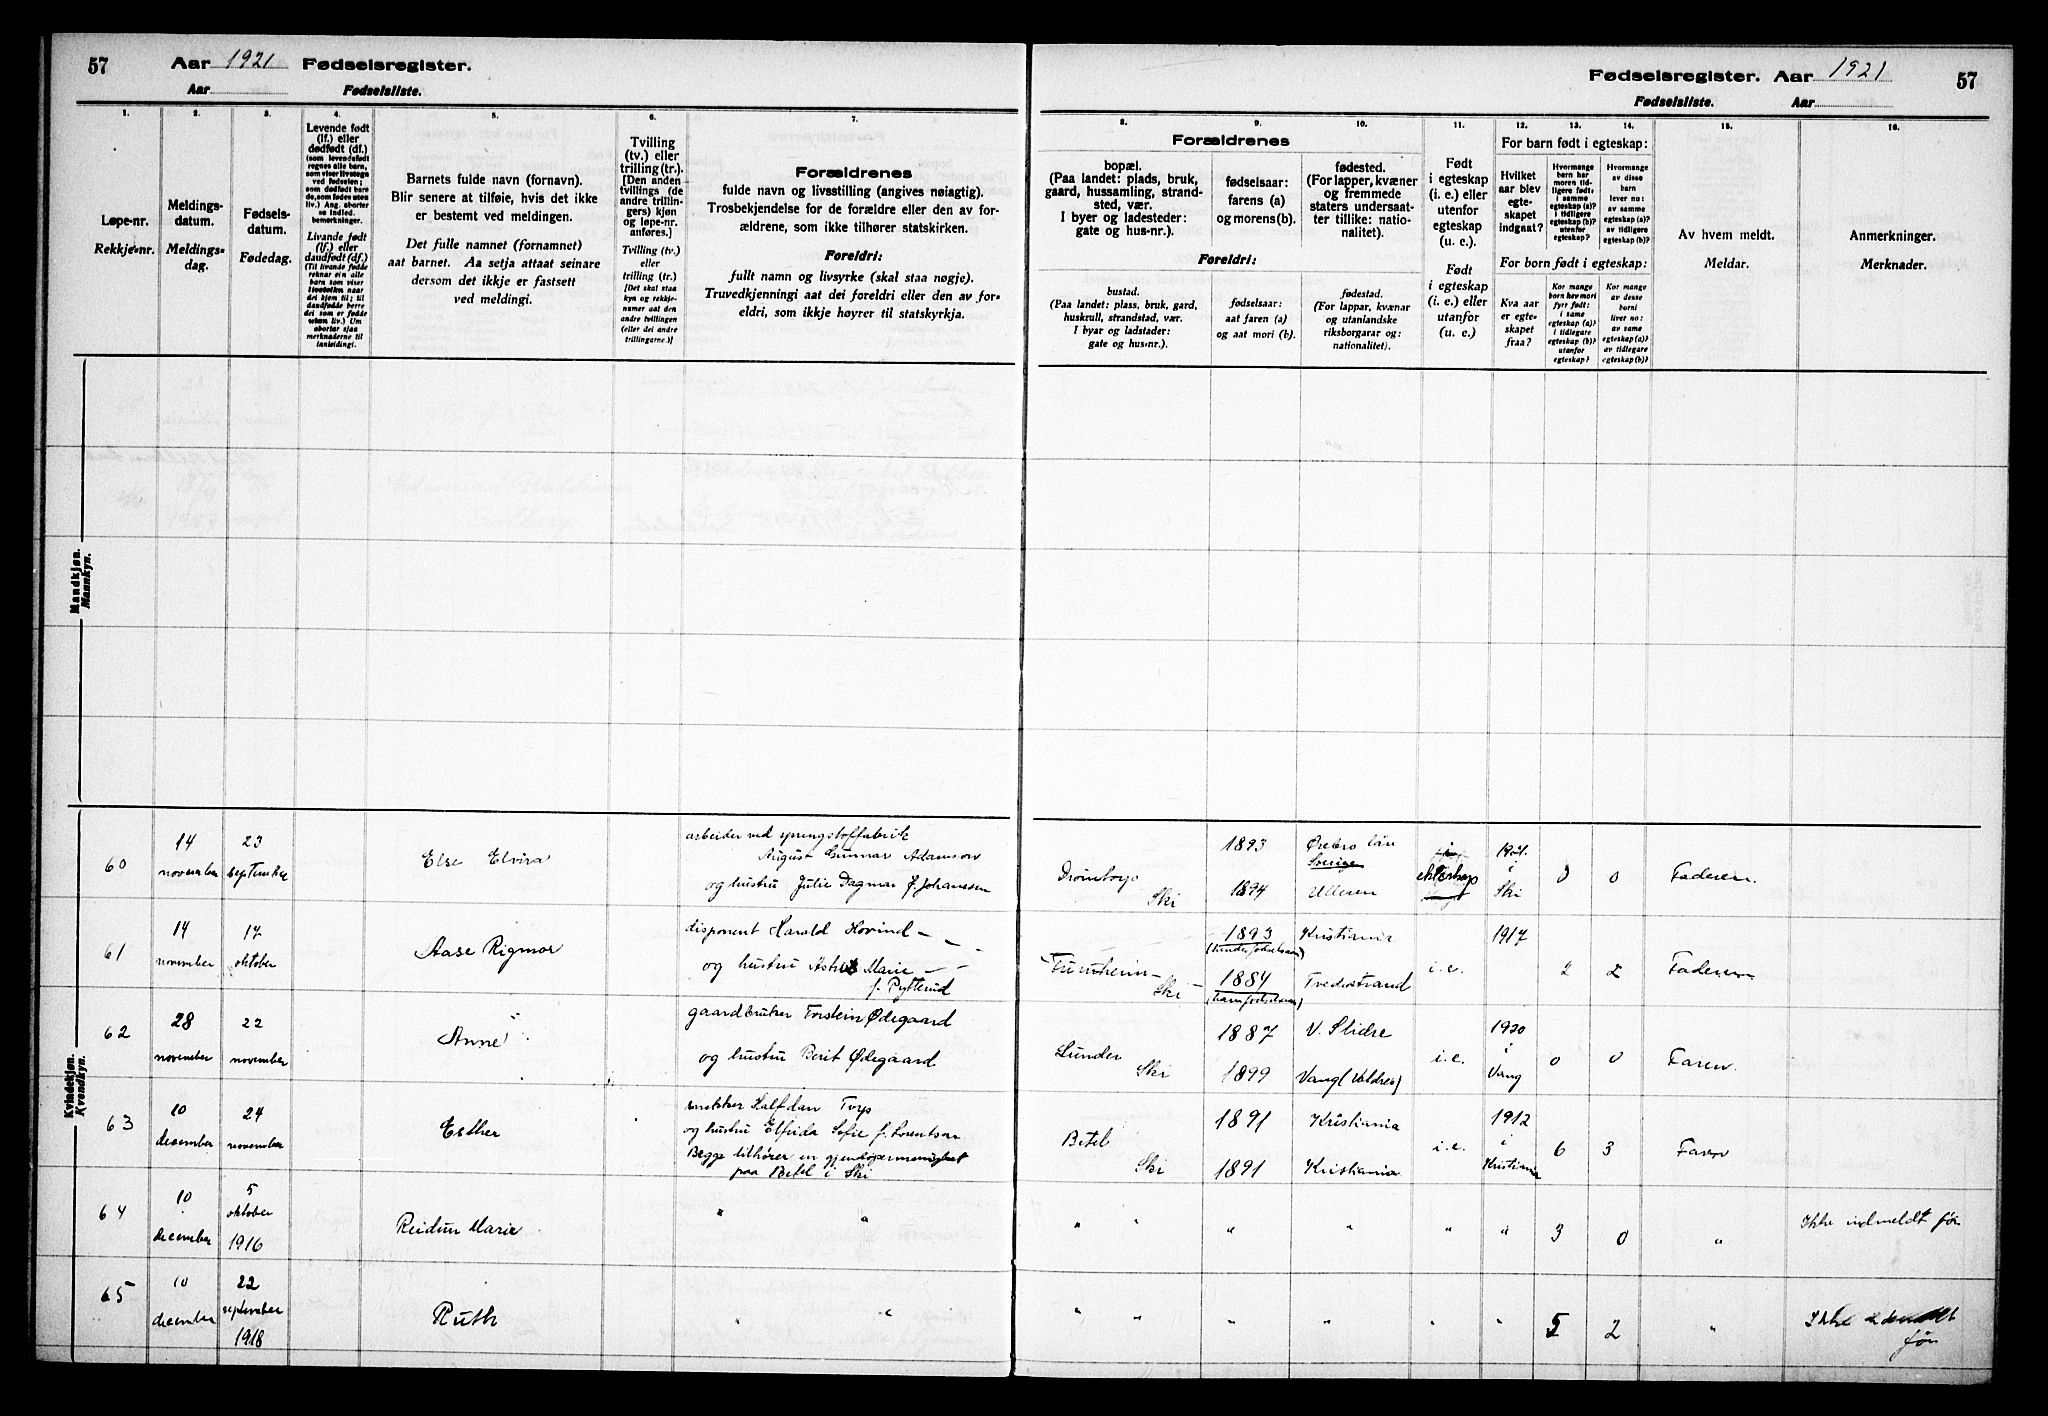 57 Aar 1921 Fødselsregister.
Aar Fødselsliste.
Fødselsregister. Aar 1921 57
Fødselsliste. Aar
1.
Løpe-nr.
Rekkje-nr.
2.
Meldings-
datum.
Meldings-
dag.
3.
Fødsels-
datum.
Fødedag.
4.
Levende født
(lf.) eller
dødfødt (df.)
(som levendefødt
regnes alle barn,
som viser livstegn
ved fødselen;
som dødfødt bare
de, som fødes uten
liv.) Ang. aborter
se indled.
bemerkninger.
Livande født
(lf.) eller
daudfødt (df.)
(Til livande fødde
reknar ein alle
born som viser
livsteikn naar
dei kjem til; til
daudfødde berre
dei som er fødde
utan liv.) Um
abortar sjaa
merknaderne til
innleiding).
5.
Barnets fulde navn (fornavn).
Blir senere at tilføie, hvis det ikke
er bestemt ved meldingen.
Det fulle namnet (fornamnet)
aat barnet. Aa setja attaat seinare
dersom det ikkje er fastsett
ved meldingi.
6.
Tvilling
(tv.) eller
trilling (tr.).
[Den anden
tvillings (de
andre trillin-
gers) kjøn
og løpe-nr.
anføres.]
Tvilling (tv.)
eller
trilling (tr.)
[Det skal staa
kyn og rekkje-
numer aat den
andre tvillingen
(eller dei andre
trillingarne.)]
7.
Forældrenes
fulde navn og livsstilling (angives nøiagtig).
Trosbekjendelse for de forældre eller den av for-
ældrene, som ikke tilhører statskirken.
Foreldri:
fullt namn og livsyrke (skal staa nøgje).
Truvedkjenningi aat dei foreldri eller den av for-
eldri, som ikkje høyrer til statskyrkja.
Forældrenes
8.
bopæl.
(Paa landet: plads, bruk,
gaard, hussamling, strand-
sted, vær.
I byer og ladesteder:
gate og hus-nr.).
9.
fødselsaar:
farens (a)
og morens(b).
10.
fødested.
(For lapper, kvæner
og fremmede
staters undersaat-
ter tillike: natio-
nalitet).
Foreldri:
bustad.
(Paa landet: plass, bruk, gard,
huskrull, strandstad, vær.
I byar og ladstader:
gate og hus-nr.).
fødselsaar:
aat faren (a)
og aat mori (b).
fødestad.
(For lappar, kvænar
og utanlandske
riksborgarar og:
nationalitet).
11.
Født
i egteskap
(i. e.) eller
utenfor
egteskap
(u. e.).
Født
i egteskap
(i. e.) eller
utanfor
egteskap
(u. e.)
For barn født i egteskap:
12.
Hvilket
aar blev
egte-
skapet
indgaat?
13.
Hvormange
barn har
moren tid-
ligere født:
i samme
egteskap (a)?
i tidligere
egteskap (b)?
utenfor
egteskap?
14.
Hvormange
av disse
barn
lever nu:
av samme
egteskap (a)?
av tidligere
egteskap (b)?
For born født i egteskap:
Kva aar
er egte-
skapet
fraa?
Kor mange
born hev mori
fyrr født:
i same
egteskap (a)?
i tidlegare
egteskap (b)?
utanfor
egteskap?
Kor mange
av desse
borni
liver no:
av same
egteskap (a)?
av tidlegare
egteskap (b)?
15.
Av hvem meldt.
Meldar.
16.
Anmerkninger.
Merknader.
Mandkjøn.
Mannkyn.
Kvindekjøn.
Kvendkyn.
60 14 november 23 september Else Elvira
arbeider ved sprengstoffabrik
August Gunnar Adamson
og hustru Julie Dagmar f. Johansen
Drømtorp Ski 1893 1894 Örebro län Sverige Ullern
i ekteskap 1921 i Ski 0 0 Faderen.
61 14 november 17 oktober Aase Rigmor
disponent Harald Hovind
og hustru Astrid Marie
Ski 1893 1884 Kristiania Fredrikstrand
i.e. 1917 2 2 Faderen
62 28 november 22 november Anne
gaardbruker Torstein Ødegaard
og hustru Berit Ødegaard
Lunder Ski 1887 1899 V. Slidre Vang (Valdres)
i.e. 1920 i Vang 0 0 Faren
63 10 desember 24 november Esther
snekker Halfdan Torp
og hustru Elfrida Sofie f. Lorentsen
Begge tilhører en gjendøpermenighet
paa Betel i Ski
Betel Ski 1891 1891 Kristiania Kristiania
i.e. 1912 i Kristiania 6 3 Faren
64 10 desember 5 oktober 1916 Reidun Marie
" " " " " " " " 3 0 " Ikke indmeldt før
65 10 desember 22 september 1918 Ruth
" " " " " " " " 5 2 " Ikke før